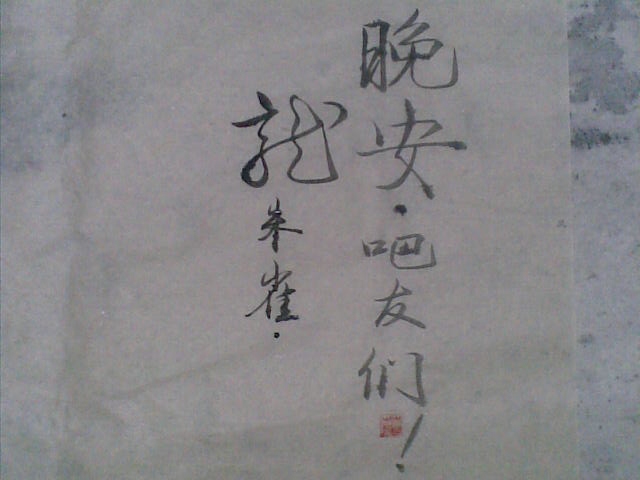 晚安·吧友们！
龙朱雀·